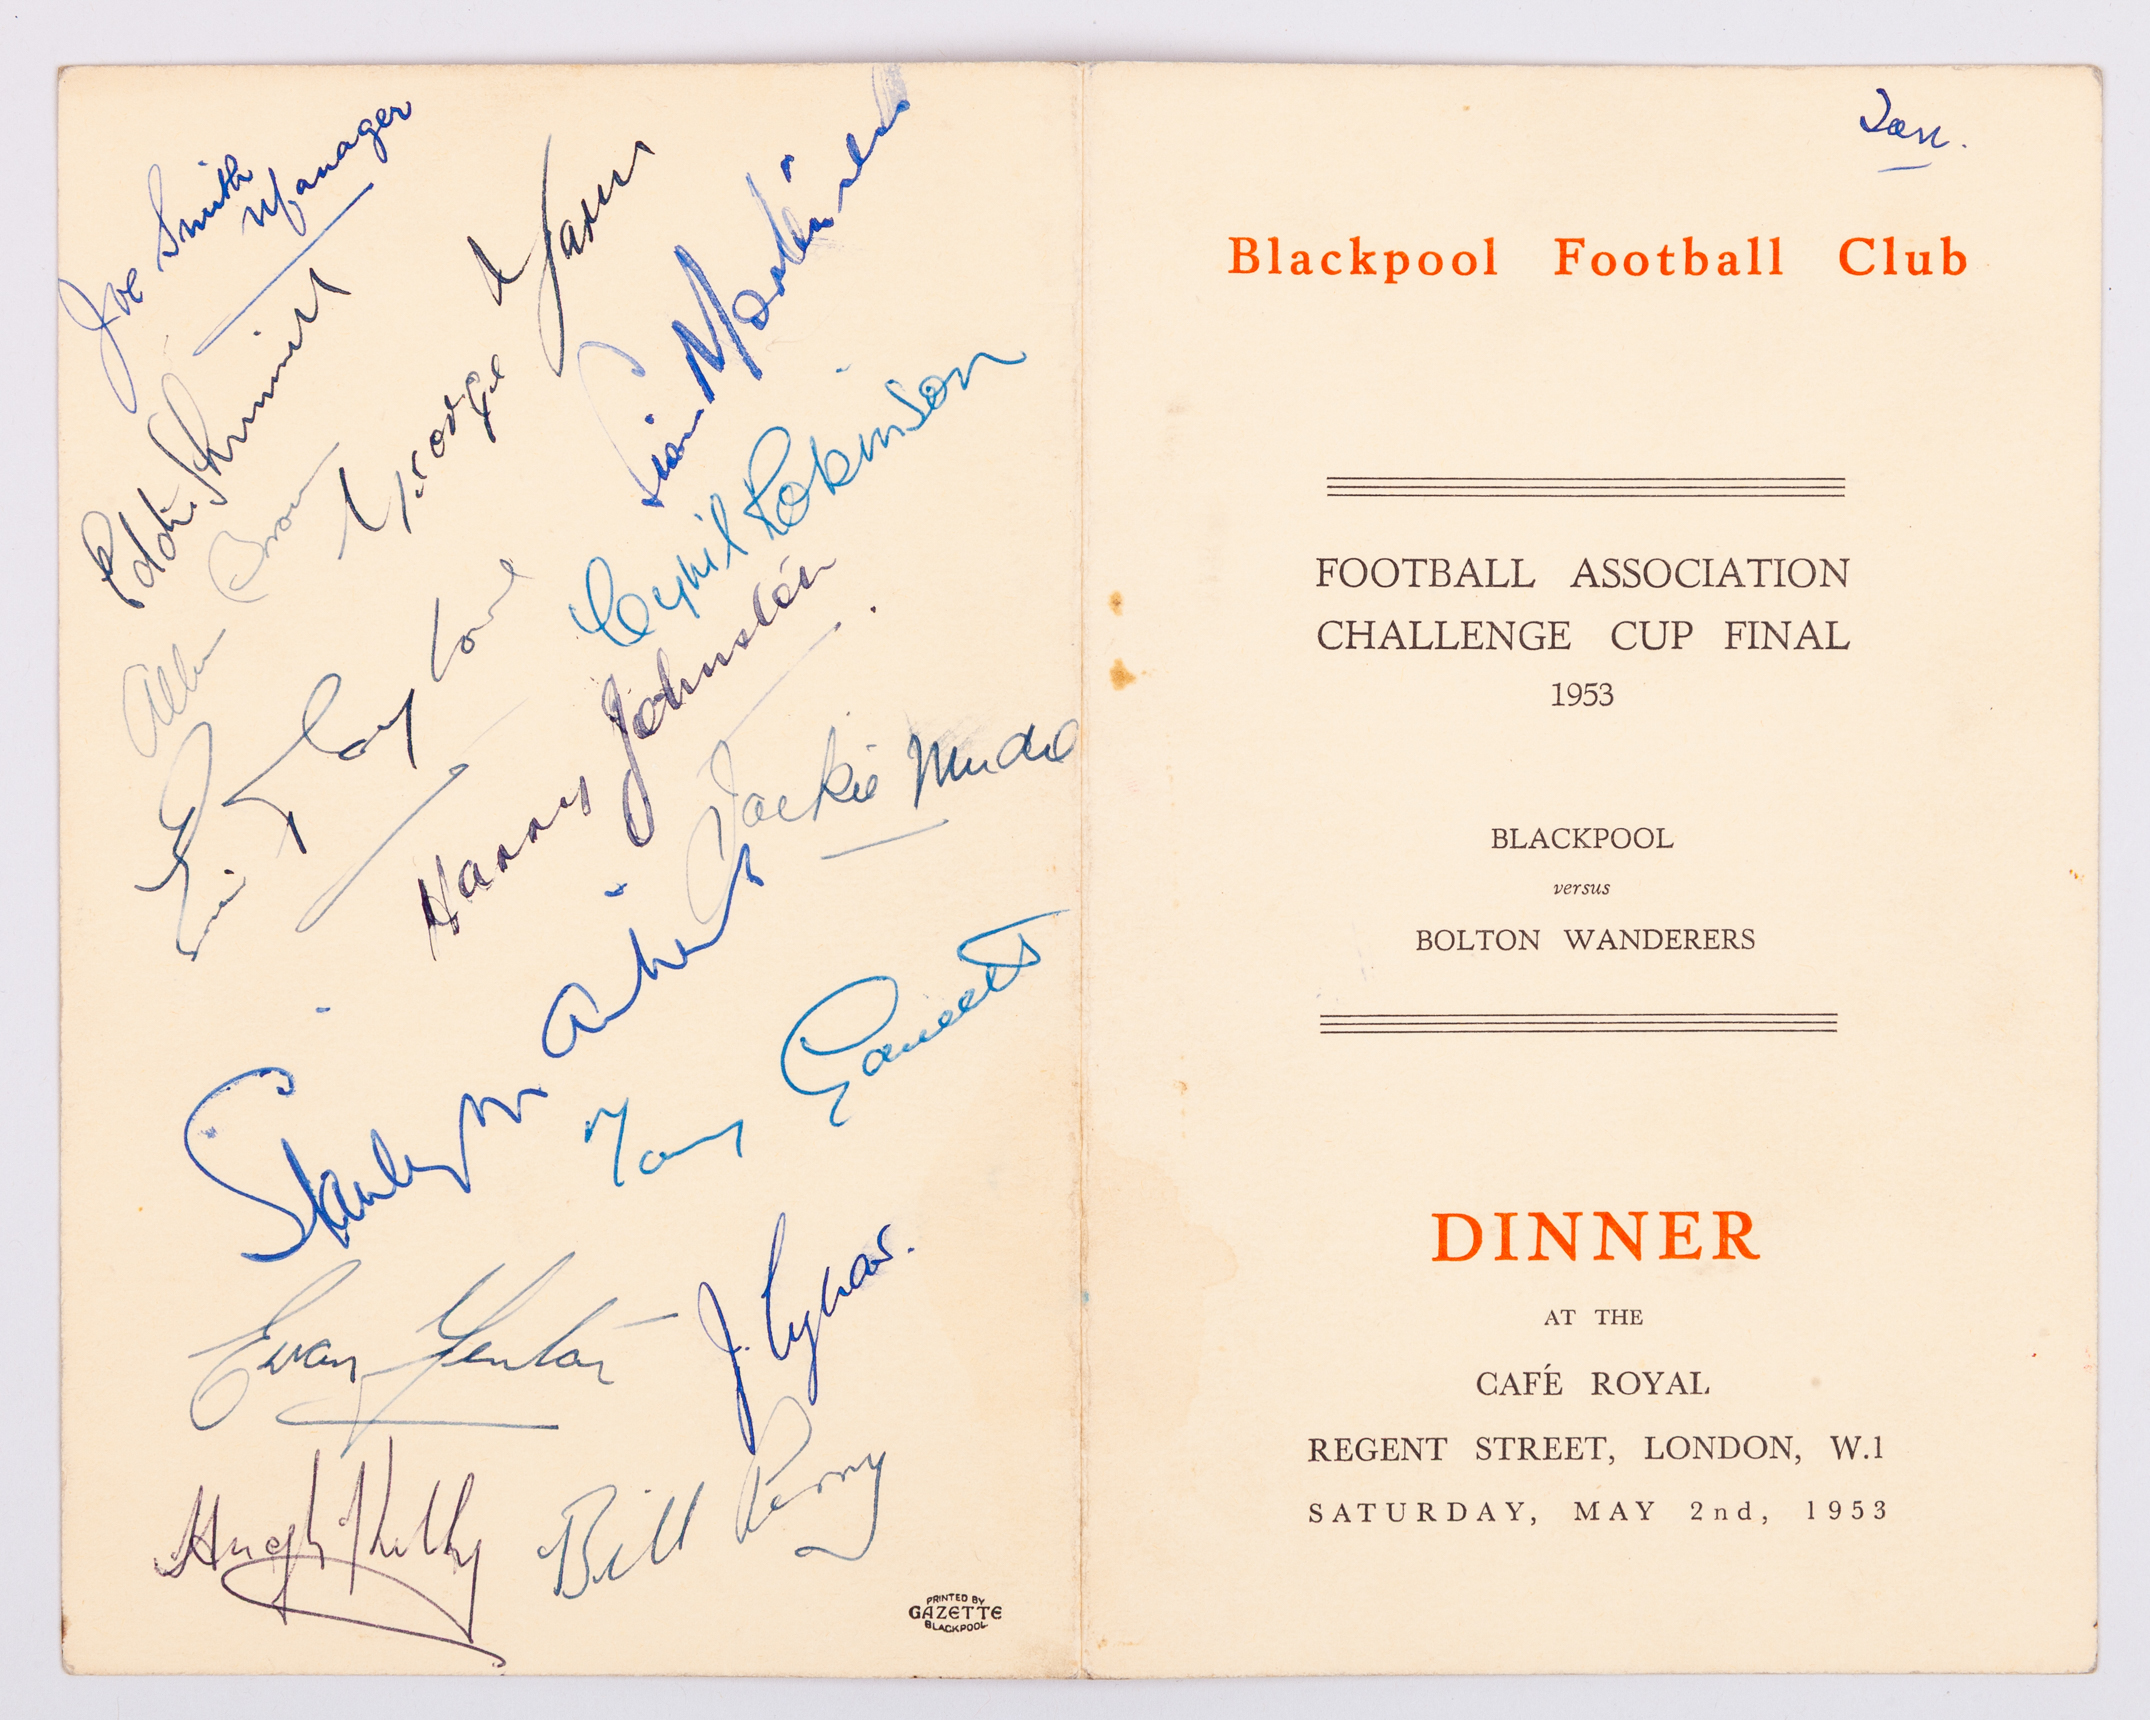 Joe Smith
Manager
Eddie Shimwell
George Farm
Stan Mortensen
Allan Brown
Cyril Robinson
Ernie Taylor
Harry Johnston
Jackie Mudie
Stanley Matthews
Tommy Garrett
Ewan Fenton
J. Crosland
Hugh Kelly
Bill Perry
PRINTED BY
GAZETTE
BLACKPOOL
Blackpool Football Club
FOOTBALL ASSOCIATION
CHALLENGE CUP FINAL
1953
BLACKPOOL
versus
BOLTON WANDERERS
DINNER
AT THE
CAFÉ ROYAL
REGENT STREET, LONDON, W.1
SATURDAY, MAY 2nd, 1953